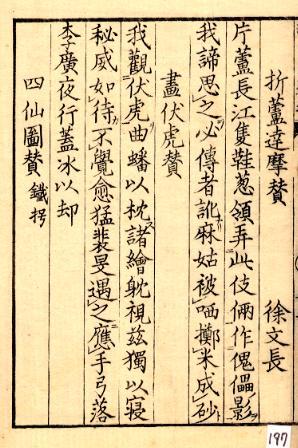 折蘆達摩贊　徐文長
片蘆長江隻鞋葱領弄此伎倆作傀儡影
我諦思之必傳者訛麻姑被哂擲米成砂
畫伏虎贊
我觀伏虎曲蟠以枕諸繪躭視茲獨以寢
秘威如待不覺愈猛裴旻遇之應手弓落
李廣夜行蓋冰以却
四仙圖贊 鐵拐
197